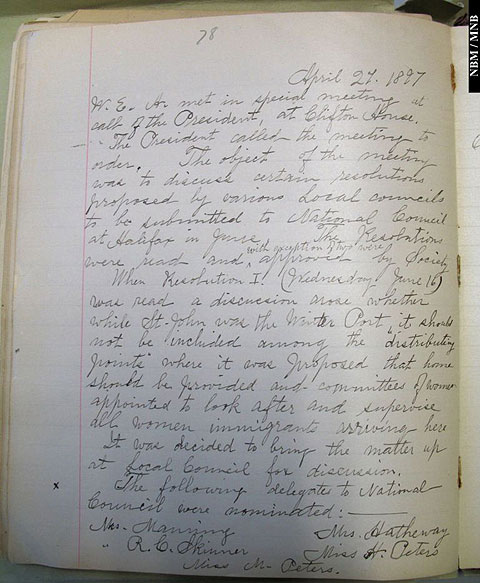 78
April 27. 1897
W. E. A. met in special meeting at
call of the President, at Clifton House.
The President called the meeting to
order. The object of the meeting
was to discuss certain resolutions
proposed by various Local councils
to be submitted to National Council
at Halifax in June. The Resolutions
with exception of two were
were read and approved by Society
When Resolution I. (Wednesday June 16)
was read a discussion arose whether
while St. John was the Winter Port, it should
not be included among the "distributing
points" where it was proposed that home
should be provided and committees of women
appointed to look after and supervise
all women immigrants arriving here
It was decided to bring the matter up
at Local Council for discussion.
x The following delegates to National
Council were nominated:
Mrs. Manning Mrs. Hatheway
" R. C. Skinner Miss H. Peters
Miss M. Peters.
NBM / MNB